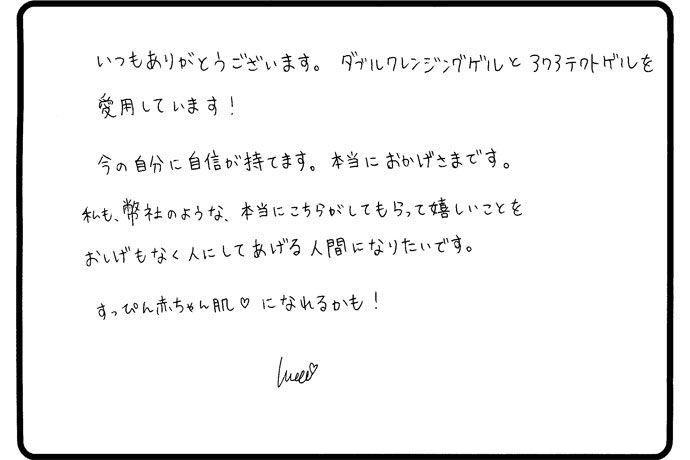 いつもありがとうございます。ダブルクレンジングゲルと ヨクヨテクトゲルを
愛用しています！
今の自分に自信が持てます。本当におかげさまです。
私も、幣社のような、本当にこちらがしてもらって嬉しいことを
おしげもなく人にしてあげる人間になりたいです。
すっぴん赤ちゃん肌♡になれるかも！